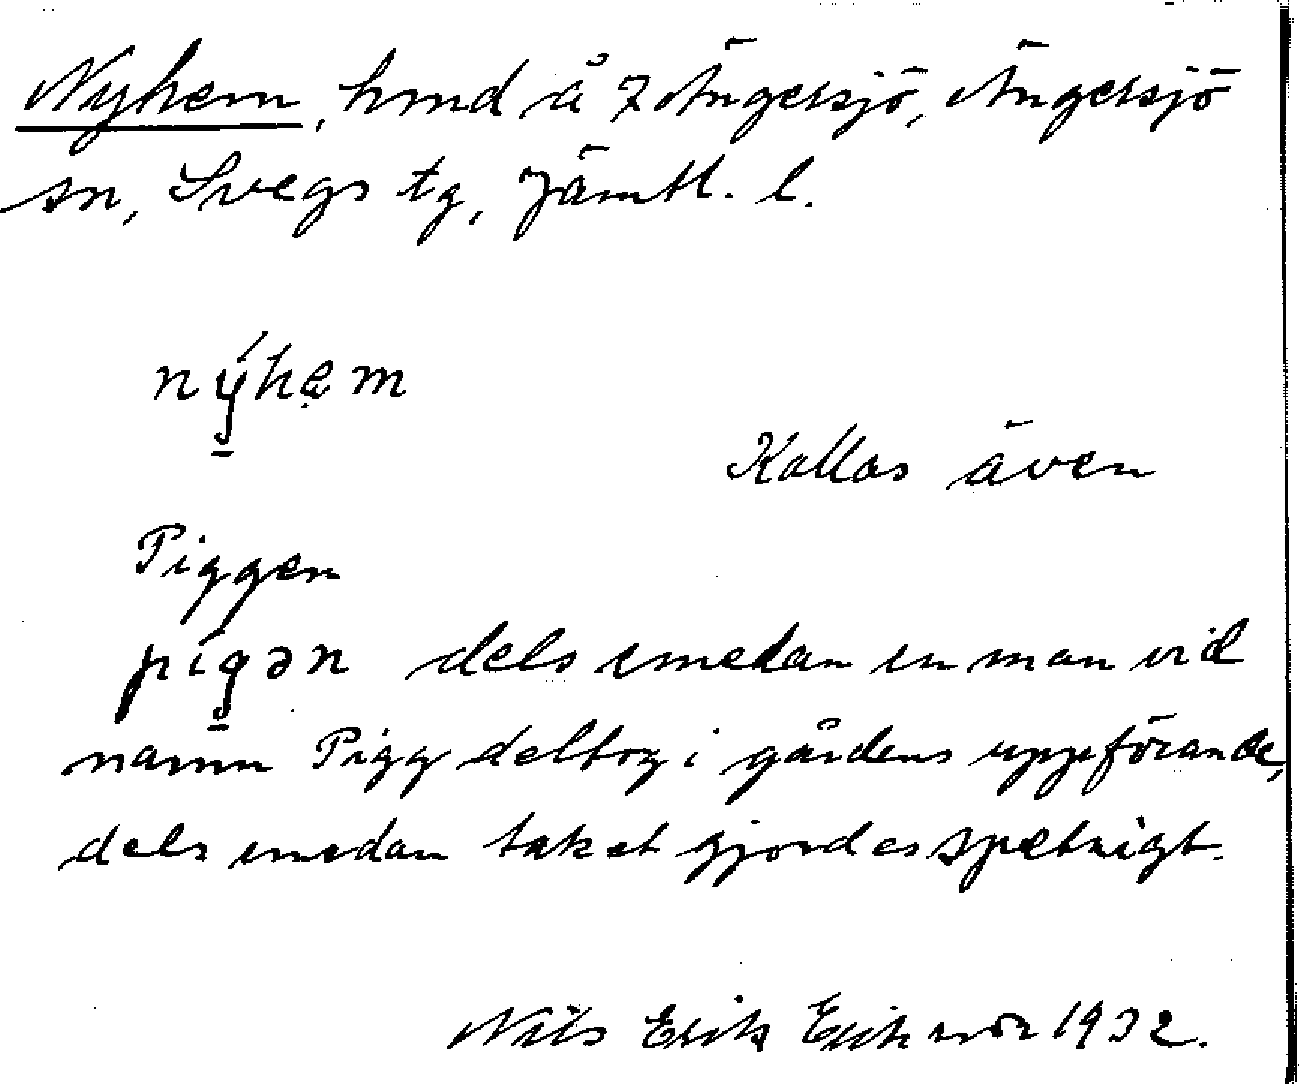 Nyhem, hmd å 7 Ängersjö, Ängersjö
sn, Svegs tg, Jämtl. l.
nýhem
Kallas även
Piggen
pígən dels emedan en man vid
namn Pigg deltog i gårdens uppförande,
dels emedan taket gjordes spetsigt.
Nils Erik Eriksson 1932.